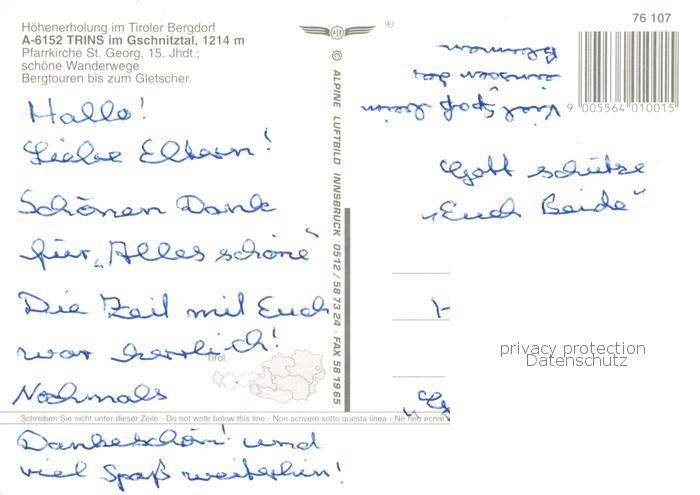 Höhenerholung im Tiroler Bergdorf
A-6152 TRINS im Gschnitztal, 1214 m
Pfarrkirche St. Georg, 15. Jhdt.;
schöne Wanderwege
Bergtouren bis zum Gletscher.
Hallo!
Liebe Eltern!
Schönen Dank
für „Alles schöne"
Die Zeit mit Euch
war herrlich!
Nochmals
Tirol
Schreiben Sie nicht unter dieser Zeile - Do not write below this line - Non scrivere sotto questa linea - Ne rien écrire
Dankeschön! und
viel Spaß weiterhin!
® 
© ALPINE LUFTBILD INNSBRUCK 0512 / 58 73 24 · FAX 58 19 65
76 107
9 005564 010015
Viel Spaß beim
der
Blumen
Gott schütze
„Euch Beide"
privacy protection
Datenschutz